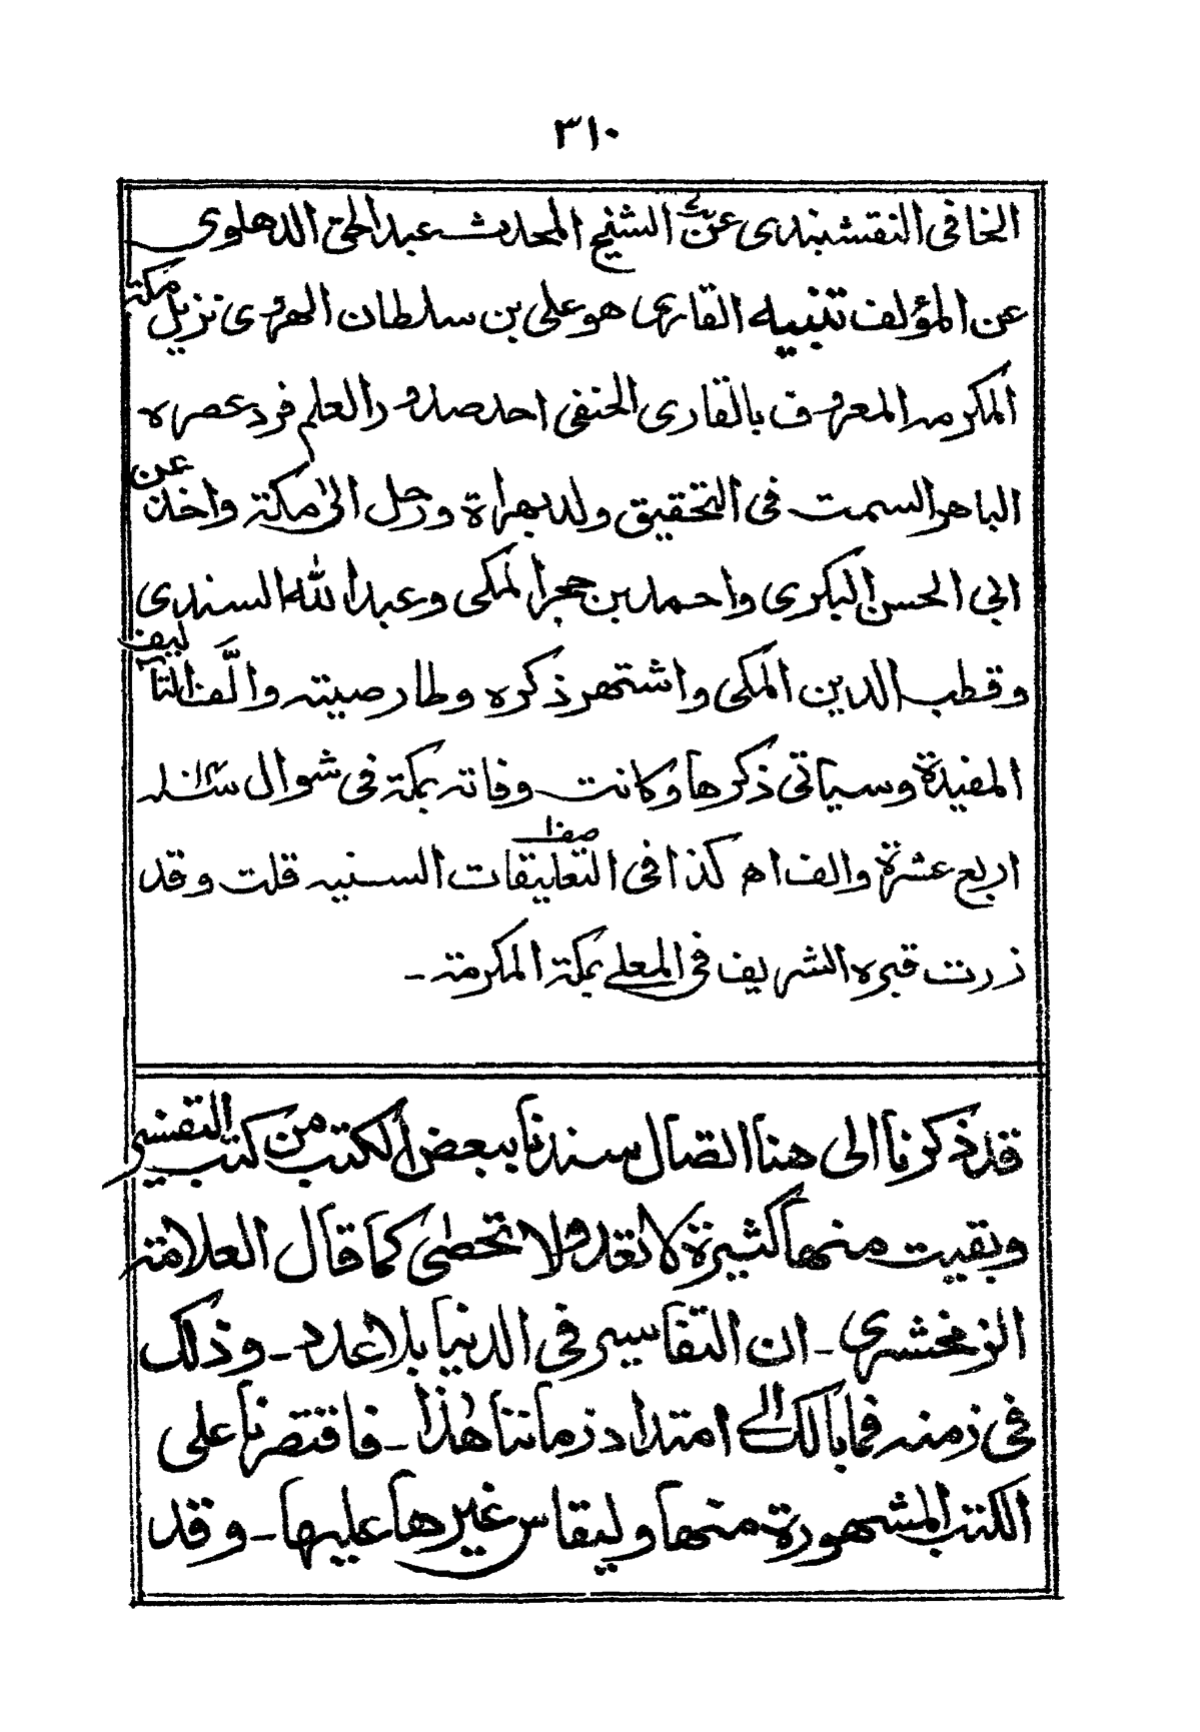 ٣١٠
الخافى النقشبندى عن الشيخ المحدث عبد الحق الدهلوى
عن المؤلف تنبيه القارى هو على بن سلطان الهروى نزيل مكة
المكرمه المعروف بالقارى الحنفى احد صدور العلم فرد عصره
الباهر السمت فى التحقيق ولد بهراة ورحل الى مكة واخذ عن
ابى الحسن البكرى واحمد بن حجر المكى وعبد الله السندى
وقطب الدين المكى واشتهر ذكره وطار صيته والَّف التآليف
المفيدة وسياتى ذكرها وكانت وفاته بمكة فى شوال سنة ١٠١٤
اربع عشرة والف اه كذا فى التعليقات السنيه قلت وقد
زرت قبره الشريف فى المعلے بمكة المكرمة ۔
قد ذكرنا الى هنا اتصال سندنا ببعض الكتب من كتب التفسير
وبقيت منها كثيرة لا تعد ولا تحصٰى كما قال العلامة
الزمخشرى ۔ ان التفاسير فى الدنيا بلا عدد ۔ وذلك
فى زمنه فما بالك الے امتداد زماننا هٰذا ۔ فاقتصرنا على
الكتب المشهورة منها وليقاس غيرها عليها ۔ وقد